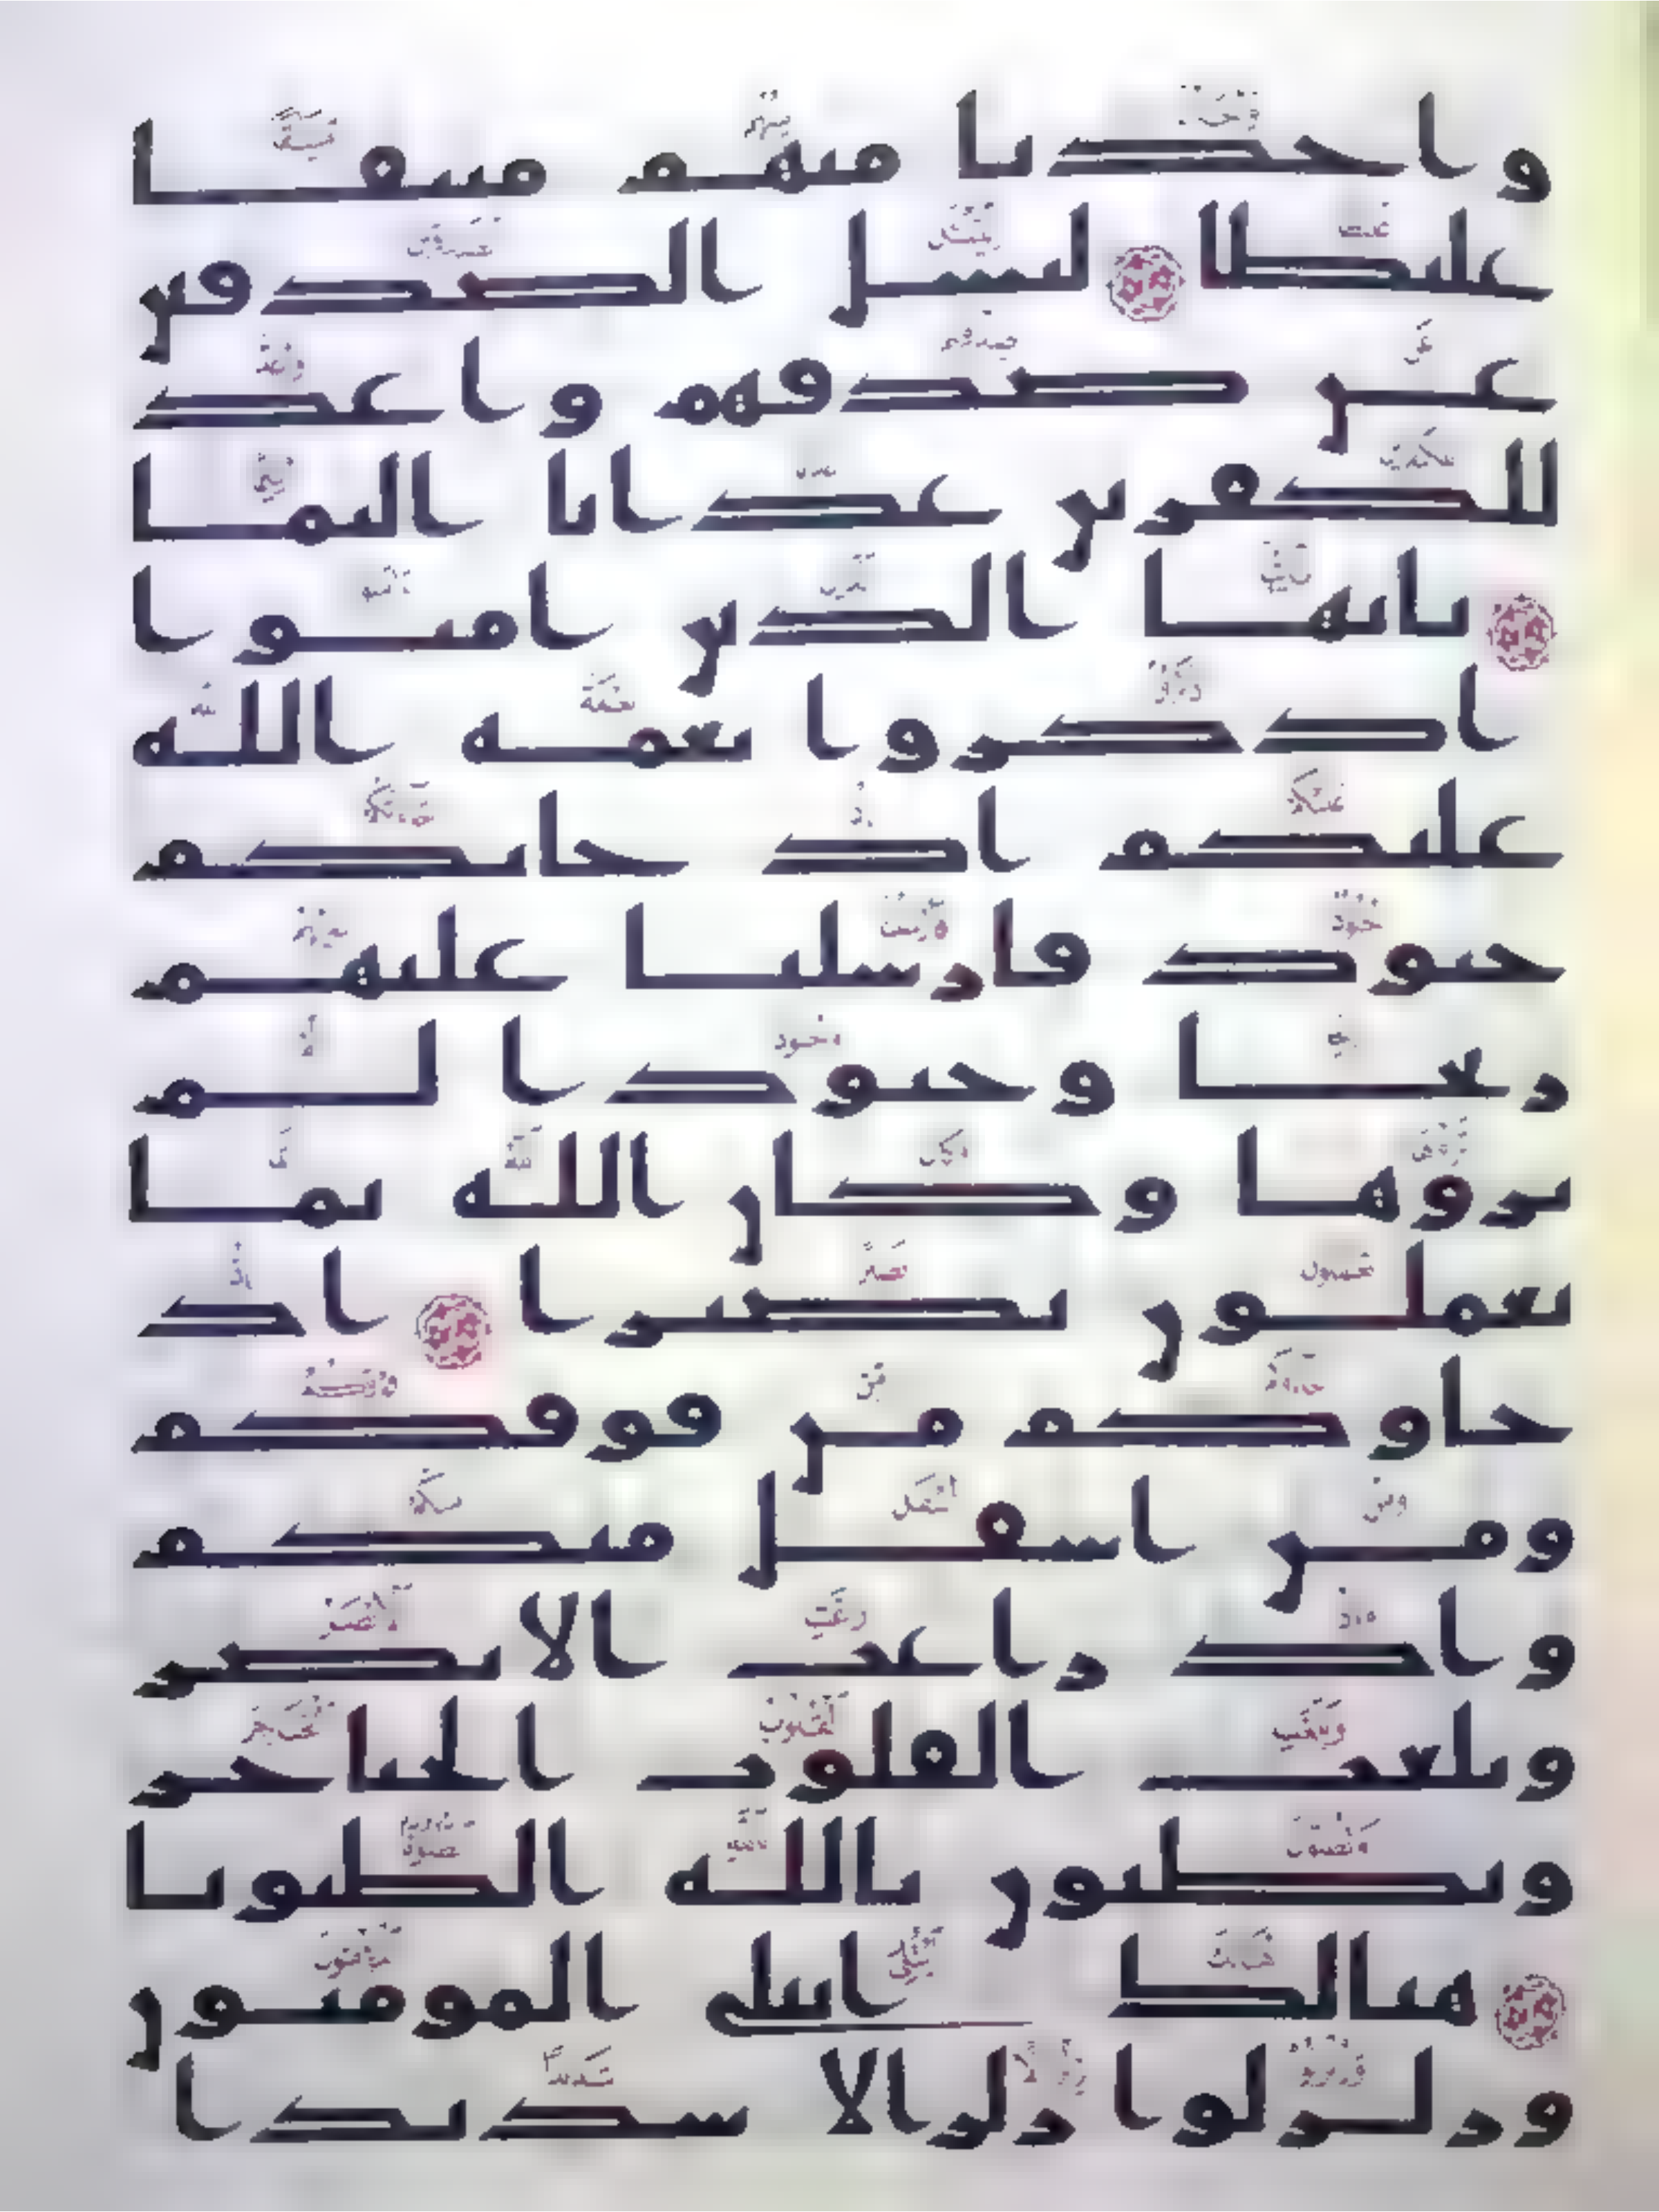 واخذنا منهم ميثقا
غليظا ليسل الصدقين
عن صدقهم واعد
للكفرين عذابا اليما
يايها الذين امنوا
اذكروا نعمه الله
عليكم اذ جاتكم
جنود فارسلنا عليهم
ريحا وجنودا لم
تروها وكان الله بما
تعملون بصيرا اذ
جاوكم من فوقكم
ومن اسفل منكم
واذ زاغت الابصر
وبلغت القلوب الحناجر
وتظنون بالله الظنونا
هنالك ابتلى المومنون
وزلزلوا زلزالا شديدا